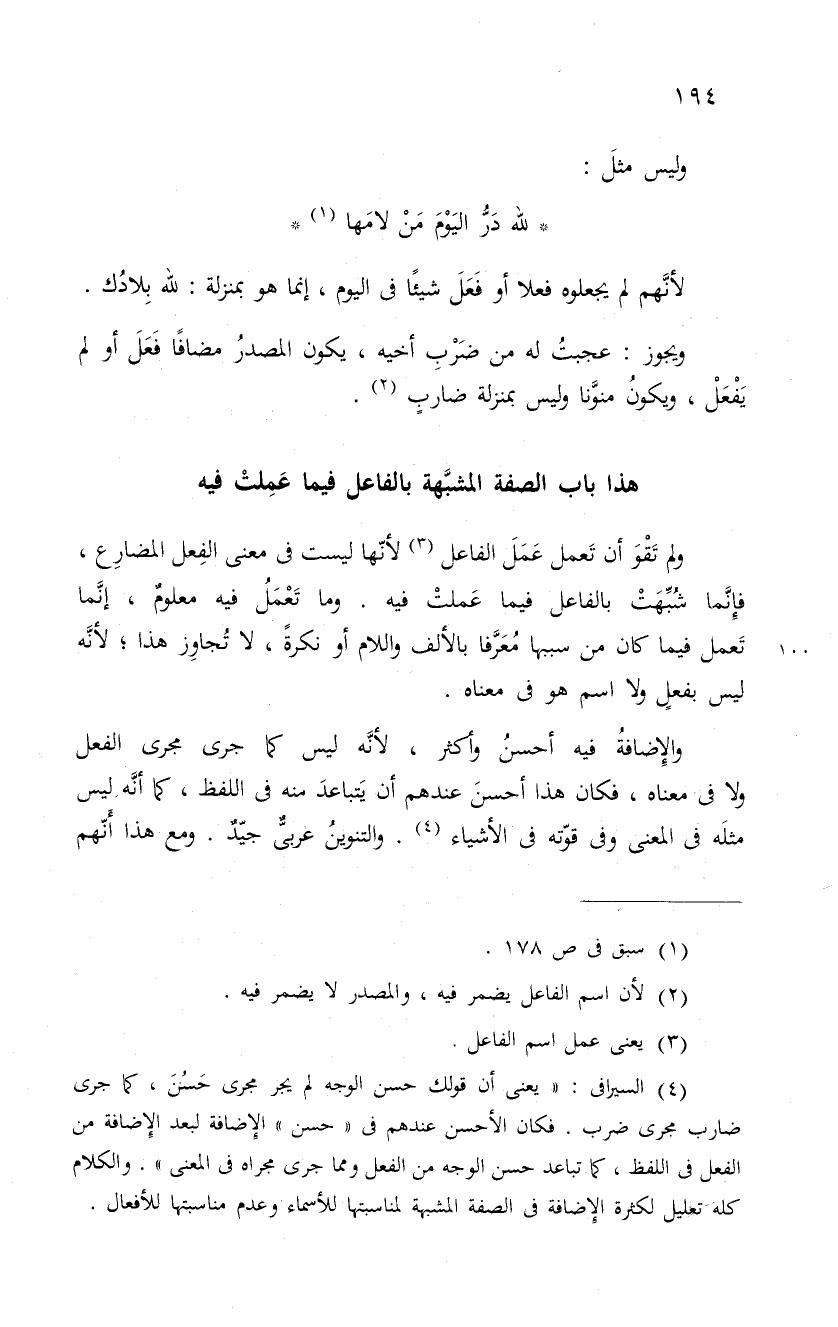 ١٩٤
وليس مثلَ :
* لله دَرُّ اليَوْمَ مَنْ لامَها (١) *
لأنَّهم لم يجعلوه فعلا أو فَعَلَ شيئًا فى اليوم ، إنما هو بمنزلة : لله بِلادُك .
ويجوز : عجبتُ له من ضَرْبِ أخيه ، يكون المصدرُ مضافًا فَعَلَ أو لم
يَفْعَلْ ، ويكونُ منوَّنا وليس بمنزلة ضاربٍ (٢) .
هذا باب الصفة المشبَّهة بالفاعل فيما عَمِلتْ فيه
ولم تَقْوَ أن تَعمل عَمَلَ الفاعل (٣) لأنّها ليست فى معنى الفِعل المضارِع ،
فإِنَّما شُبِّهَتْ بالفاعل فيما عَملتْ فيه . وما تَعْمَلُ فيه معلومٌ ، إنَّما
تَعمل فيما كان من سببها مُعَرَّفا بالألف واللام أو نكرةً ، لا تُجاوِز هذا ؛ لأنَّه
١٠٠
ليس بفعلٍ ولا اسم هو فى معناه .
والإِضافةُ فيه أحسنُ وأكثر ، لأنَّه ليس كما جرى مجرى الفعل
ولا فى معناه ، فكان هذا أحسنَ عندهم أن يَتباعدَ منه فى اللفظ ، كما أنَّه ليس
مثلَه فى المعنى وفى قوّته فى الأشياء (٤) . والتنوينُ عربىٌّ جيّدٌ . ومع هذا أَنَّهم
(١) سبق فى ص ١٧٨ .
(٢) لأن اسم الفاعل يضمر فيه ، والمصدر لا يضمر فيه .
(٣) يعنى عمل اسم الفاعل .
(٤) السيرافى : « يعنى أن قولك حسن الوجه لم يجر مجرى حَسُنَ ، كما جرى
ضارب مجرى ضرب . فكان الأحسن عندهم فى « حسن » الإِضافة لبعد الإِضافة من
الفعل فى اللفظ ، كما تباعد حسن الوجه من الفعل ومما جرى مجراه فى المعنى » . والكلام
كله تعليل لكثرة الإِضافة فى الصفة المشبهة لمناسبتها للأسماء وعدم مناسبتها للأفعال .